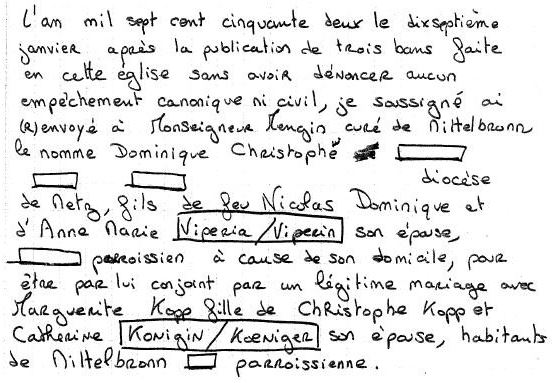 L'an mil sept cent cinquante deux le dixseptième
janvier après la publication de trois bans faite
en cette église sans avoir dénoncer aucun
empêchement canonique ni civil, je soussigné ai
(R)envoyé à Monseigneur Mengin curé de Mittelbronn
le nomme Dominique Christophe
diocèse
de Metz, fils de feu Nicolas Dominique et
d'Anne Marie Viperia / Viperin son épouse,
parroissien à cause de son domicile, pour
être par lui conjoint par un légitime mariage avec
Marguerite Kopp fille de Christophe Kopp et
Catherine Konigin / Kœniger son épouse, habitants
de Mittelbronn parroissienne.